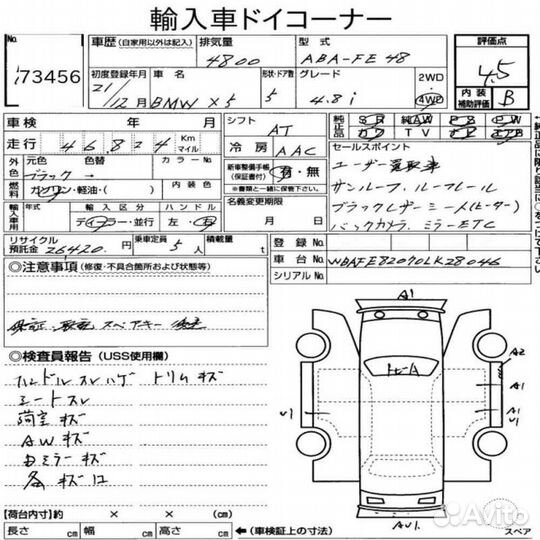 輸入車ドイコーナー
No.
73456
車歴 (自家用以外は記入) 排気量 型式
4800 ABA-FE48
評価点
4.5
内装補助評価 B
初度登録年月 車名 形状・ドア数 グレード 2WD
21/12月 BMW X5 5 4.8i 4WD
車検 年 月
シフト AT
純正品 SR AW PS PW
カワ TV ナビ エアB
走行 46824 Km マイル
冷房 AAC
セールスポイント
ユーザー買取車
サンルーフ、ルーフレール
ブラックレザーシート(ヒーター)
バックカメラ、ミラーETC
外色 元色 色替 カラーNo.
ブラック →
燃料 ガソリン・軽油・( ) 内装色
新車整備手帳(保証書付) 有・無
名義変更期限
月 日
輸入車用 年式 輸入区分 ハンドル
ディーラー・並行 左・右
リサイクル預託金 26420 円 乗車定員 5人 積載量 t
登録No.
車台No. WBAFE82070LK28046
シリアルNo.
◎注意事項 (修復・不具合箇所および状態等)
保証、取説、スペアキー後送
◎検査員報告 (USS使用欄)
ハンドルスレハゲ トリムキズ
シートスレ
荷室キズ
A.Wキズ
各キズ凹
A1
A2
A1
A1
U1
U1
【荷台内寸】約 × × (cm)
長さ cm 幅 cm 高さ cm
←(車検証上の寸法)
スペア
Avito